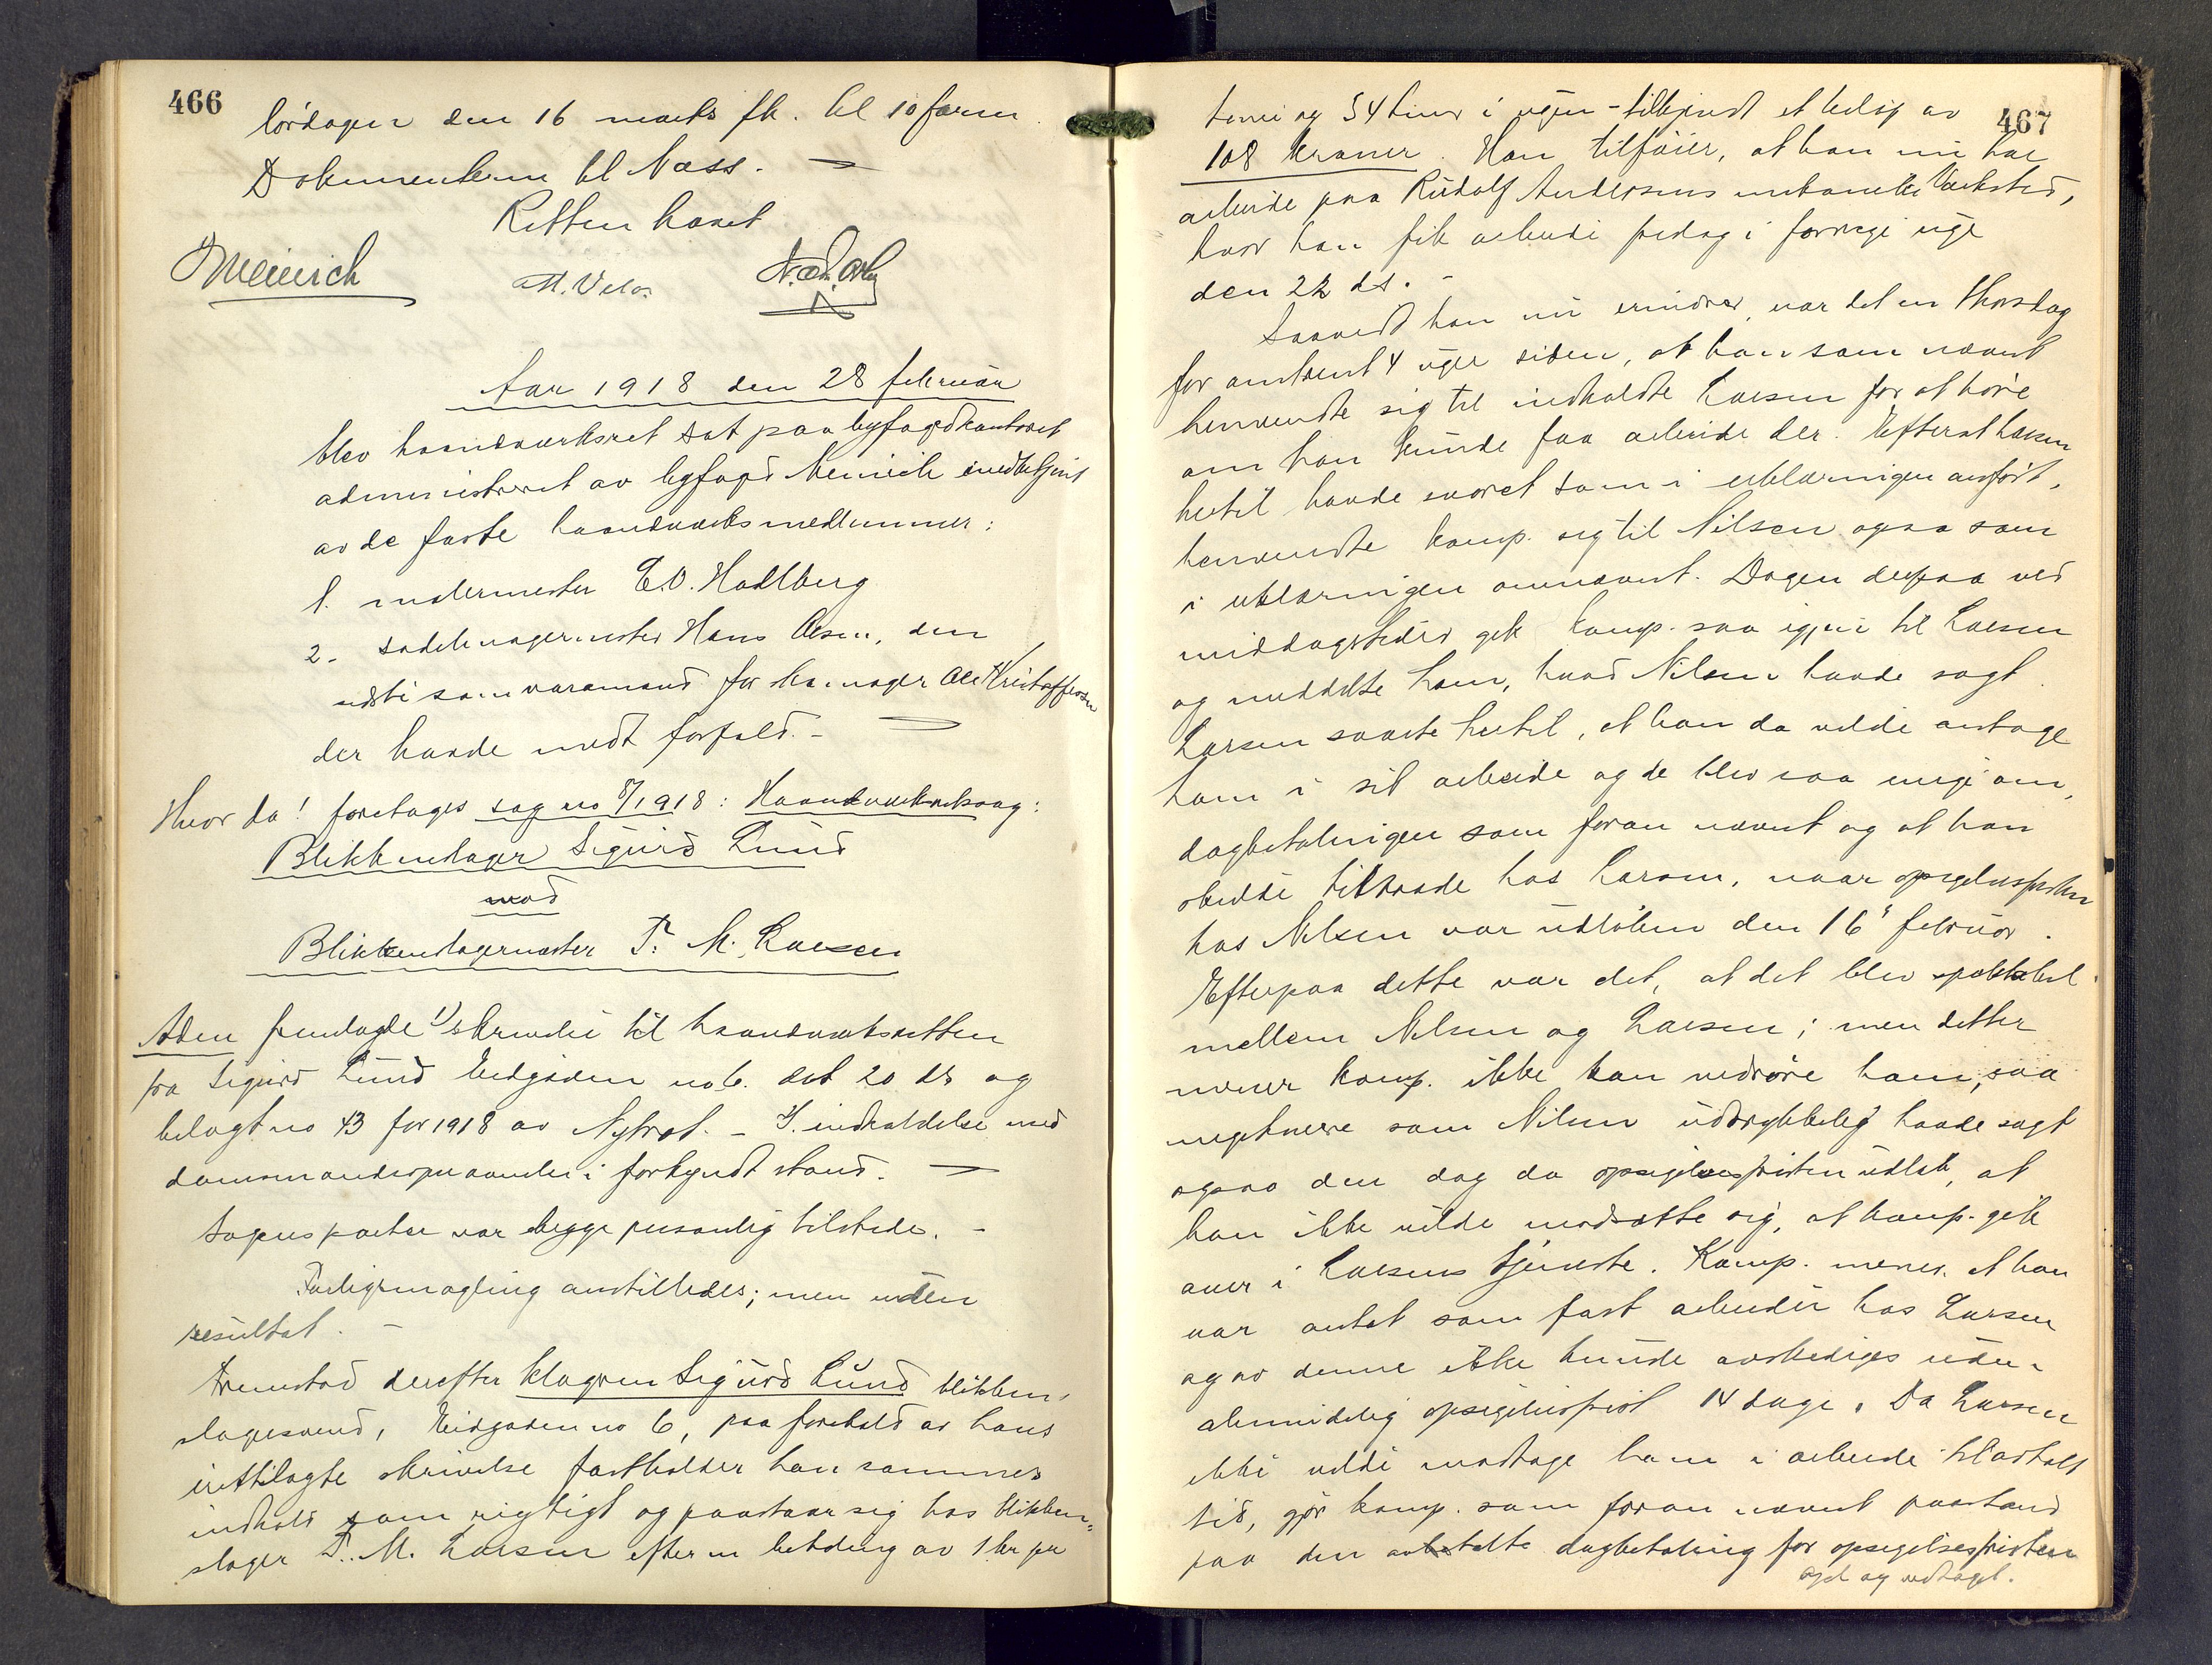 466
lørdagen den 16 marts fk. kl 10 form.
Dokumenterne til Næss. —
Retten hævet
Meinich
M. Velo.
Aar 1918 den 28 februar
blev haandverksret sat paa byfogdkontoret
administreret av byfogd Meinich med betjent
av de faste haandverksmedlemmer:
1. malermester E.O. Hadlberg
2. sadelmagermester Hans Olsen, den
sidste som varamand for skomager Ole Kristoffersen
der havde meldt forfald. —
Hvor da! foretages sag no 8/1918: Haandverksretssag:
Blikkenslager Sigurd Lund
mod
Blikkenslagermester T. M. Larsen
Aden fremlagde 1) skrivelse til haandverksretten
fra Sigurd Lund Eidgaden no 6. dat 20 ds og
belagt no 43 for 1918 av Nytrøt. — I. indkaldelse med
domsmandsopnævnelse i forkyndt stand. —
Sagens parter var begge personlig tilstede. —
Forligsmægling anstilledes; men uten
resultat. —
Fremstod derefter klageren Sigurd Lund blikken-
slagersvend, Eidgaden no 6, paa forehold av hans
irettelagte skrivelse fastholder han sammes
indhold som rigtigt og paastaar sig hos blikken-
slager T. M. Larsen efter en betaling av 1 kr pr
467
time og 54 timer i ugen - tilkjendt et beløp av
108 kroner. Han tilføier, at han nu har
arbeide paa Rudolf Andersens mekaniske Verksted,
hvor han fik arbeide fredag i forrige uge
den 22 ds. —
Saavidt han nu erindrer, var det en Thorsdag
for omtrent 4 uger siden, at han som nævnt
henvendte sig til indkaldte Larsen for at høre
om han kunde faa arbeide der. Efterat Larsen
hertil havde svaret som i erklæringen anført,
henvendte komp. sig til Nilsen ogsaa som
i erklæringen omnævnt. Dagen derpaa ved
middagstider gik komp. saa igjen til Larsen
og meddelte ham, hvad Nilsen havde sagt.
Larsen svarte hertil, at han da vilde antage
ham i sit arbeide og de blev saa enige om,
dagbetalingen som foran nævnt og at han
skulde tiltræde hos Larsen, naar opsigelsesfristen
hos Nilsen var utløben den 16' februar.
Efterpaa dette var det, at det blev spektakel
mellem Nilsen og Larsen; men dette
mener komp. ikke kan vedrøre ham, saa
meget mere som Nilsen udtrykkelig havde sagt
ogsaa den dag da opsigelsesfristen utløb, at
han ikke vilde modsætte sig, at komp. gik
over i Larsens tjeneste. Komp. mener at han
var antat som fast arbeider hos Larsen
og av denne ikke kunde avskediges uden
almindelig opsigelsesfrist 14 dage. Da Larsen
ikke vilde modtage ham i arbeide til avtalt
tid, gjør komp. som foran nævnt paastand
paa den avtalte dagbetaling for opsigelsesfristen
Opl. og vedtaget.